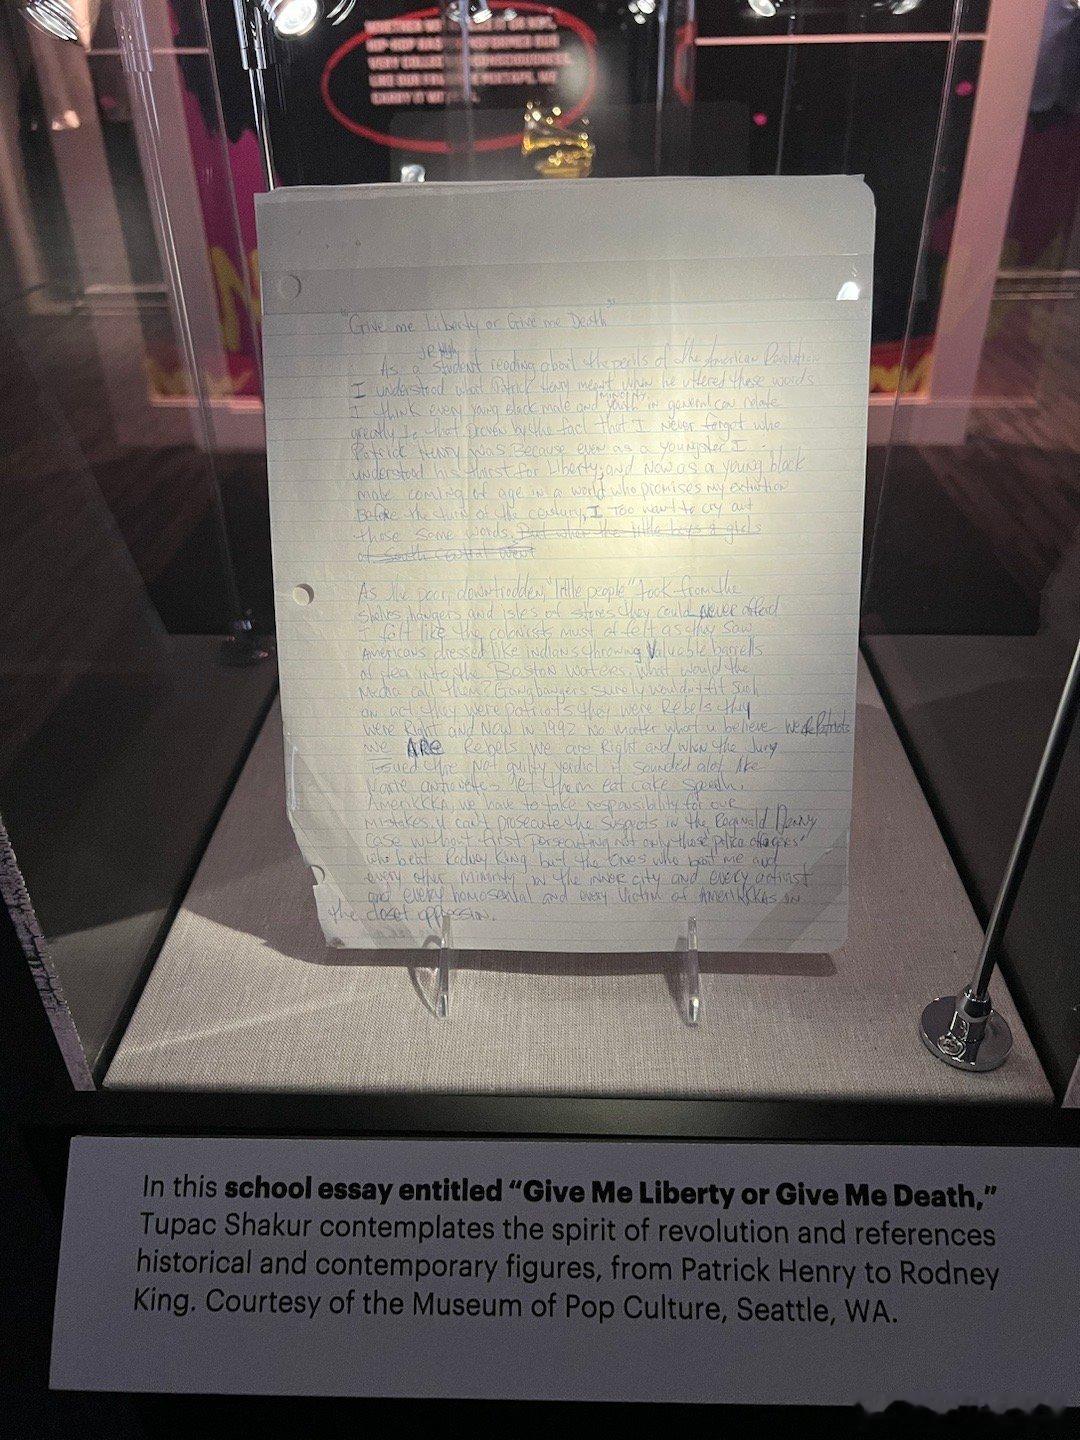 HIP HOP HAS TRANSFORMED OUR
VERY COLLECTIVE CONSCIOUSNESS.
CARRY IT WITH US.
"Give me Liberty or Give me Death"
As a student reading about the perils of the American Revolution
I understood what Patrick Henry meant when he uttered these words
I think every young black male and minority youth in general can relate
greatly to that proven by the fact that I never forgot who
Patrick Henry was. Because even as a youngster I
understood his thirst for Liberty, and Now as a young black
male coming of age in a world who promises my extintion
Before the turn of the century, I too want to cry out
those same words. But when the little boys & girls
of South central went
As the poor, downtrodden, "little people" took from the
shelves, hangers and isles of stores they could never afford
I felt like the colonists must of felt as they saw
Americans dressed like indians throwing Valuable barrells
of tea into the Boston waters, what would the
Media call them? Gangbangers surely wouldn't fit such
an act. they were patriots they were Rebels they
were Right and Now in 1992 no matter what u believe we R Patriots
we ARE Rebels we are Right and when the Jury
issued the Not guilty verdict it sounded alot like
Marie antionettes let them eat cake speach.
AmeriKKKA, we have to take responsibility for our
mistakes. U can't prosecute the suspects in the Reginald Denny
case without first persecuting not only those "police officers"
who beat Rodney King but the ones who beat me and
every other minority in the inner city and every activist
and every homosexual and every victim of AmeriKKKAs in
the closet oppression.
In this school essay entitled “Give Me Liberty or Give Me Death,”
Tupac Shakur contemplates the spirit of revolution and references
historical and contemporary figures, from Patrick Henry to Rodney
King. Courtesy of the Museum of Pop Culture, Seattle, WA.